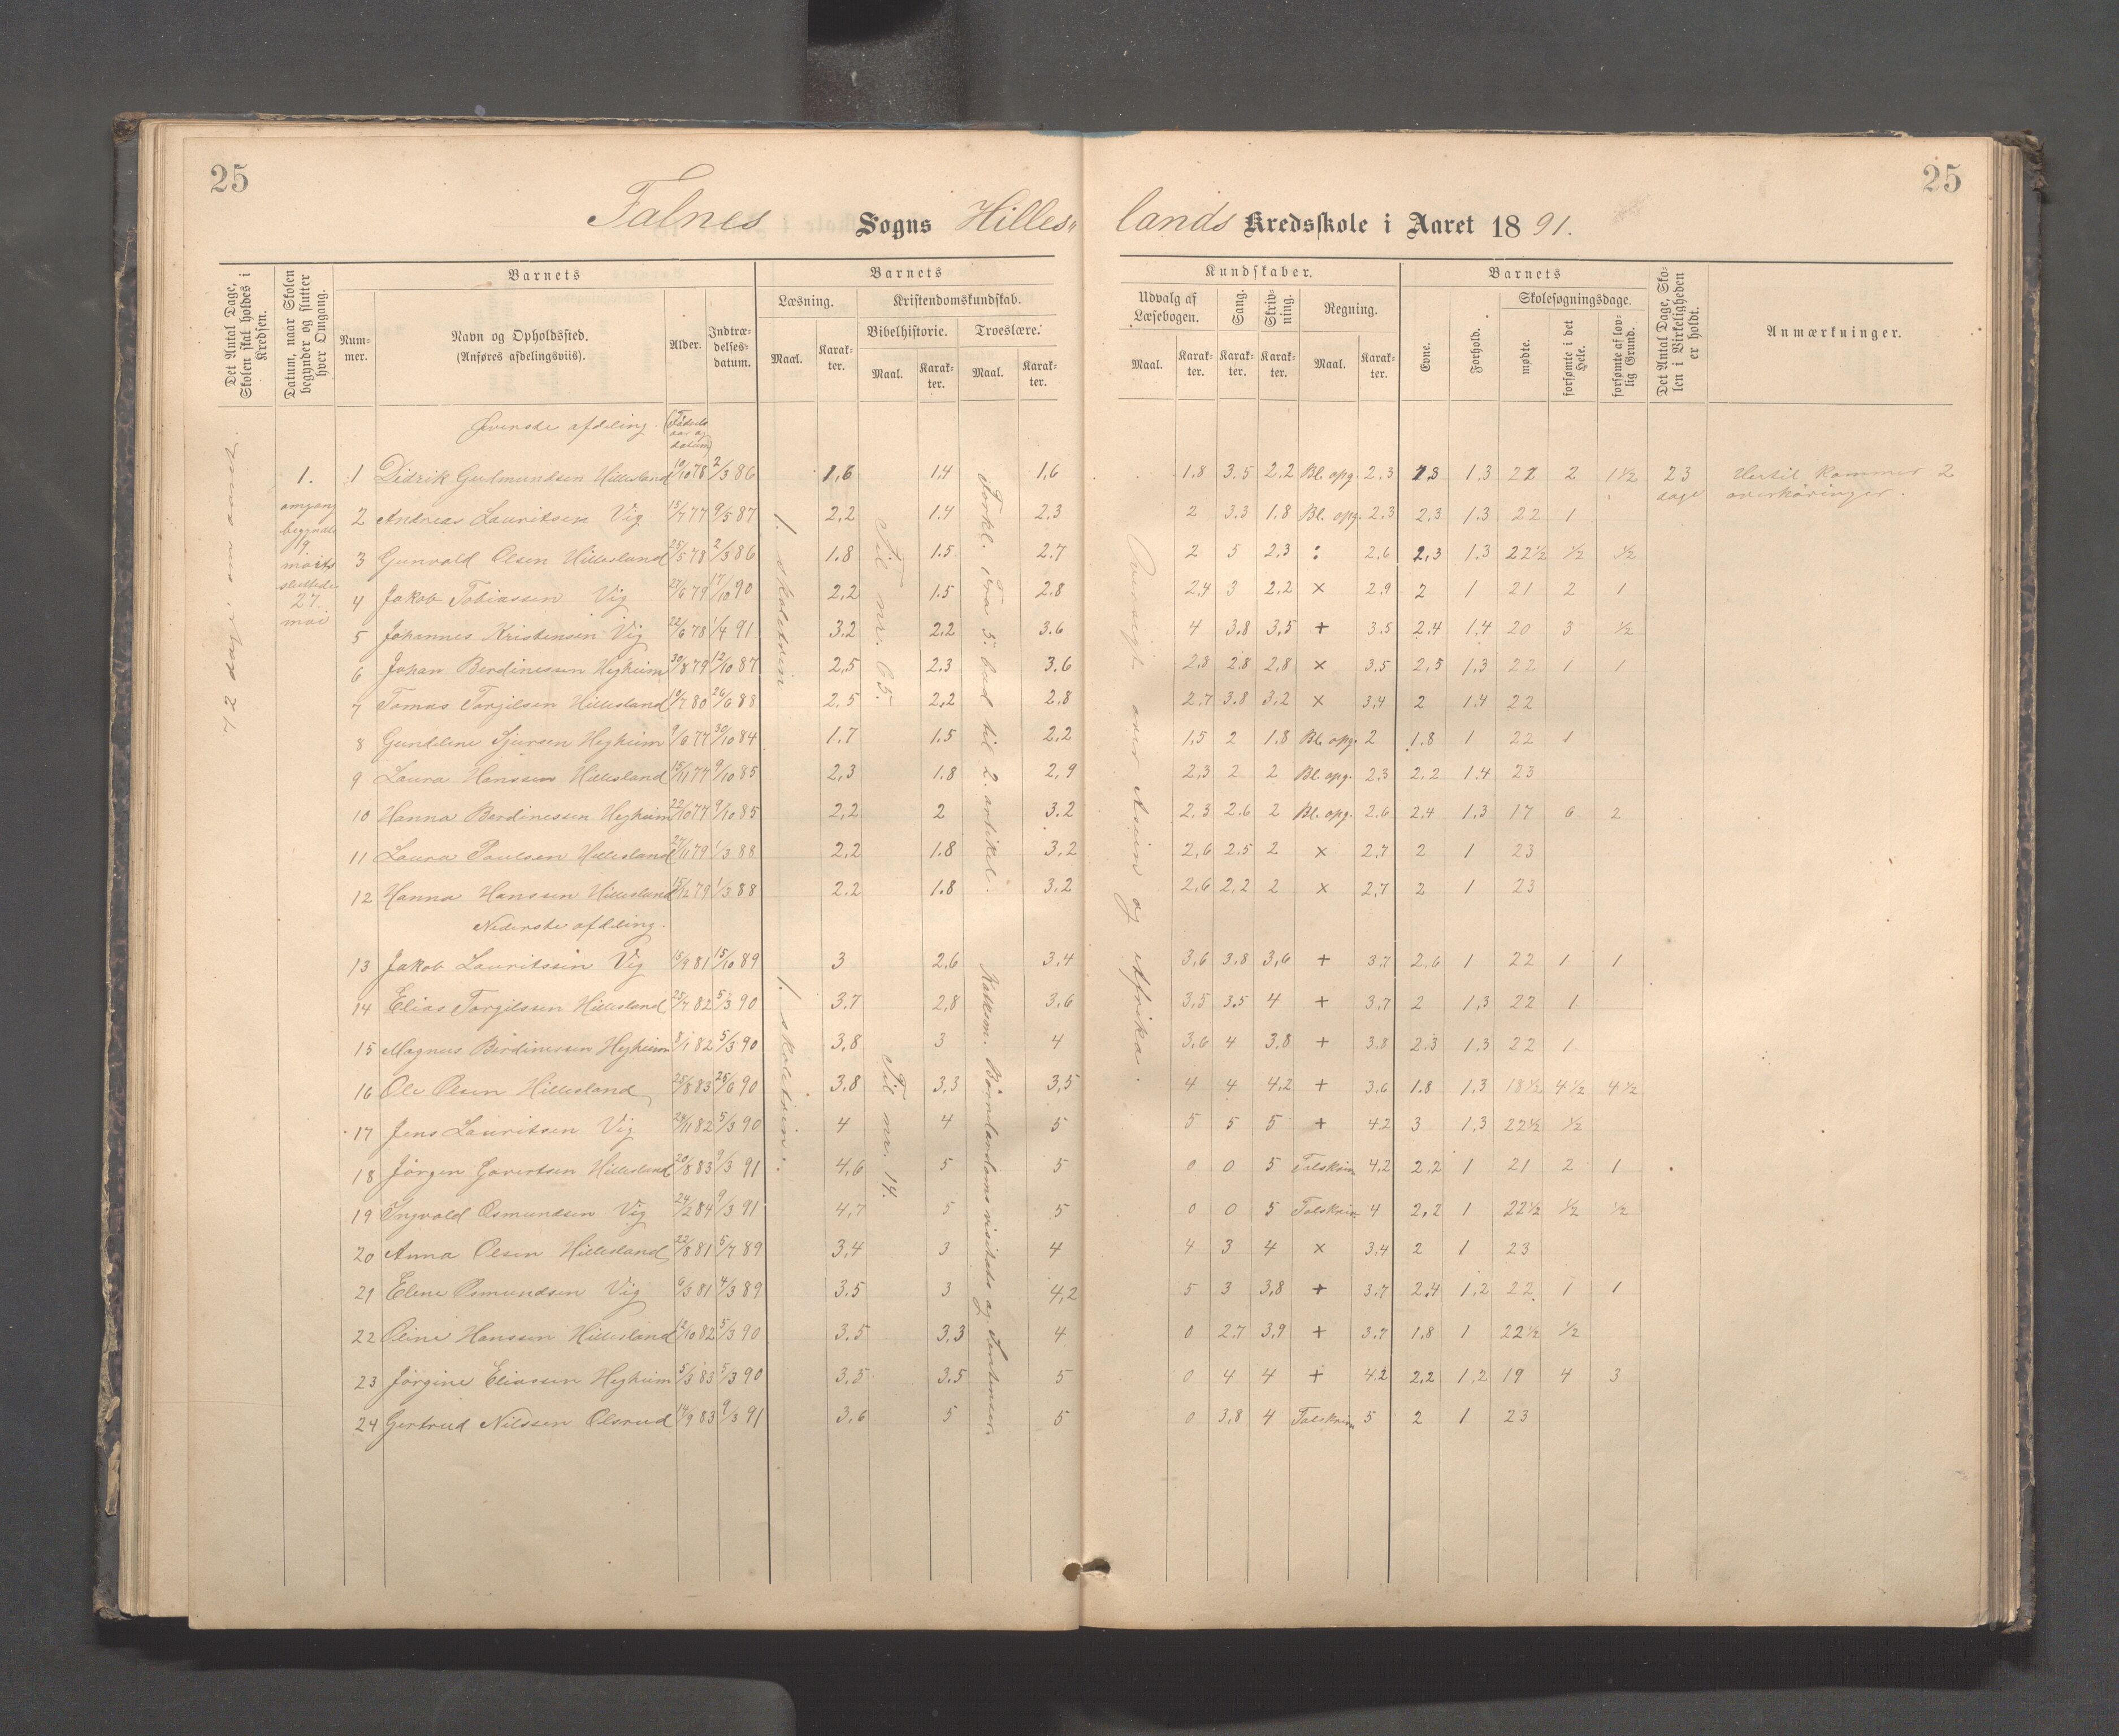 25
25
Falnes Sogns Hilles" lands Kredsskole i Aaret 1891.
Det Antal Dage, Skolen skal holdes i Kredsen.
Datum, naar Skolen begynder og slutter hver Omgang.
Barnets
Num-mer.
Navn og Opholdssted.
(Anføres afdelingsviis).
Alder.
Indtræ-delses-datum.
Barnets
Læsning.
Maal.
Karak-ter.
Kristendomskundskab.
Bibelhistorie.
Maal.
Karak-ter.
Troeslære.
Maal.
Karak-ter.
Kundskaber.
Udvalg af Læsebogen.
Maal.
Karak-ter.
Sang.
Karak-ter.
Skriv-ning.
Karak-ter.
Regning.
Maal.
Karak-ter.
Barnets
Evne.
Forhold.
Skolesøgningsdage.
mødte.
forsømte i det Hele.
forsømte af lov-lig Grund.
Det Antal Dage, Sko-len i Virkeligheden er holdt.
Anmærkninger.
Øverste afdeling. (Fødsels aar og datum)
1. omgang begynte 9 marts sluttede 27 mai
1 Didrik Gudmundsen Hillesland 10/10 78 2/3 86 1,6 1,4 1,6 1,8 3.5 2.2 Bl. opg. 2,3 1,8 1.3 21 2 1½ 23 dage Hertil kommer 2 overhöringer.
2 Andreas Lauritsen Vig 15/7 77 9/5 87 2,2 1.4 2,3 2 3.3 1.8 Bl. opg. 2.3 2,3 1.3 22 1
3 Gunvald Olsen Hillesland 25/5 78 2/3 86 1.8 1.5 2.7 2 5 2,3 : 2.6 2,3 1.3 22½ ½ ½
4 Jakob Tobiassen Vig 27/6 79 17/10 90 2,2 1.5 2.8 2,4 3 2,2 × 2.9 2 1 21 2 1
5 Johannes Kristensen Vig 22/6 78 1/4 91 3.2 2,2 3.6 4 3,8 3,5 + 3.5 2.4 1.4 20 3 ½
6 Johan Berdinessen Hejheim 30/8 79 12/10 87 2,5 2.3 3.6 2,8 2.8 2,8 × 3,5 2,5 1,3 22 1 1
7 Tomas Torgilsen Hillesland 9/7 80 26/6 88 2,5 2,2 2.8 2,7 3.8 3,2 × 3,4 2 1.4 22
8 Gundline Sjursen Hejheim 9/6 77 30/10 84 1.7 1.5 2,2 1,5 2 1.8 Bl. opg. 2 1.8 1 22 1
9 Laura Hanssen Hillesland 15/11 77 9/10 85 2,3 1.8 2,9 2,3 2 2 Bl. opg. 2,3 2.2 1.4 23
10 Hanna Berdinessen Hejheim 22/10 77 9/10 85 2,2 2 3.2 2,3 2.6 2 Bl. opg. 2.6 2.4 1,3 17 6 2
11 Laura Paulsen Hillesland 27/11 79 1/3 88 2,2 1.8 3,2 2,6 2.5 2 × 2,7 2 1 23
12 Hanna Hanssen Hillesland 15/12 79 1/3 88 2.2 1.8 3,2 2,6 2,2 2 × 2,7 2 1 23
Nederste afdeling.
13 Jakob Lauritssen Vig 15/9 81 15/10 89 3 2.6 3,4 3,6 3.8 3,6 + 3,7 2.6 1 22 1 1
14 Elias Torgilssen Hillesland 25/7 82 5/3 90 3,7 2,8 3,6 3,5 3.5 4 + 3,7 2 1,3 22 1
15 Magnus Berdinessen Hejheim 8/1 82 5/3 90 3,8 3 4 3,6 4 3,8 + 3.8 2.3 1.3 22 1
16 Ole Olsen Hillesland 25/8 83 25/6 90 3,8 3,3 3,5 4 4 4,2 + 3,6 1.8 1,3 18½ 4½ 4½
17 Jens Lauritsen Vig 29/11 82 5/3 90 4 4 5 5 5 5 + 4,2 3 1,3 22½ ½
18 Jörgen Govertsen Hillesland 20/8 83 9/3 91 4,6 5 5 0 0 5 Talskriv. 4,2 2,2 1 21 2 1
19 Ingvald Osmundsen Vig 24/2 84 9/3 91 4,7 5 5 0 0 5 Talskriv. 4 2,2 1 22½ ½ ½
20 Anna Olsen Hillesland 22/8 81 5/7 89 3,4 3 4 4 3 4 × 3,4 2 1 23
21 Elene Osmundsen Vig 6/3 81 4/3 89 3.5 3 4,2 5 3 3,8 + 3,7 2,4 1,2 22 1 1
22 Oline Hanssen Hillesland 12/10 82 5/3 90 3.5 3,3 4 0 2.7 3,9 + 3,7 1,8 1 22½ ½
23 Jörgine Eliassen Hejheim 5/3 83 5/3 90 3,5 3.5 5 0 4 4 + 4.2 2,2 1,2 19 4 3
24 Gertrud Nilssen Olsrud 14/9 83 9/3 91 3,6 5 5 0 3,8 4 Talskriv. 5 2 1 23
1. skoletrin
Til nr. 65.
Forkl. fra 5. bud til 2. artikel.
Oversigt over Asien og Afrika.
1. skoletrin.
Til nr. 14.
Katekism. Børnelærdoms visitats og Sentenser.